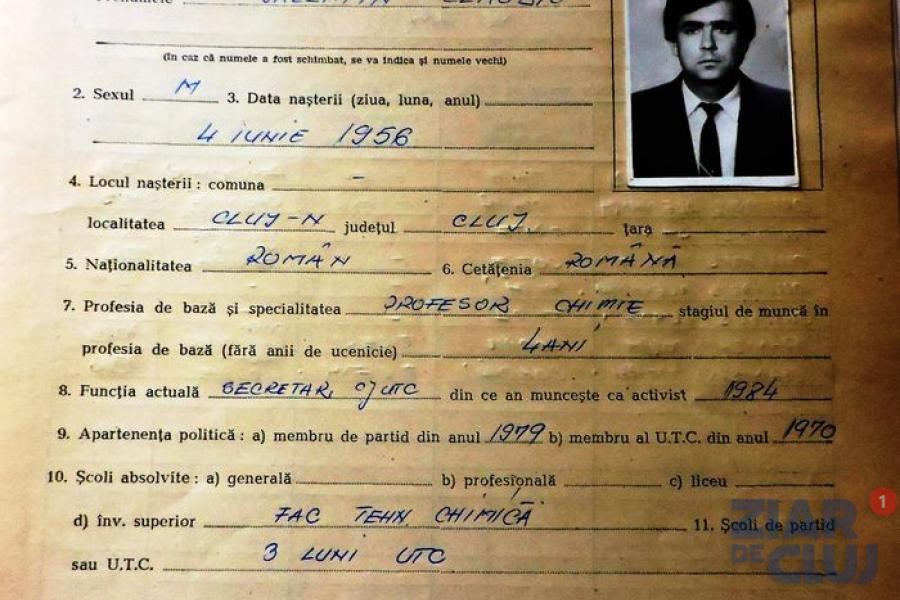 (In caz că numele a fost schimbat, se va indica și numele vechi)
2. Sexul M 3. Data nașterii (ziua, luna, anul)
4 IUNIE 1956
4. Locul nașterii : comuna –
localitatea CLUJ-N județul CLUJ. țara
5. Naționalitatea ROMÂN 6. Cetățenia ROMÂNĂ
7. Profesia de bază și specialitatea PROFESOR CHIMIE stagiul de muncă în
profesia de bază (fără anii de ucenicie) 4 ANI
8. Funcția actuală SECRETAR, CJ UTC din ce an muncește ca activist 1984
9. Apartenența politică : a) membru de partid din anul 1979 b) membru al U.T.C. din anul 1970
10. Școli absolvite : a) generală b) profesională c) liceu
d) înv. superior FAC TEHN CHIMICĂ 11. Școli de partid
sau U.T.C. 3 LUNI UTC
ZIAR
DE CLUJ
1